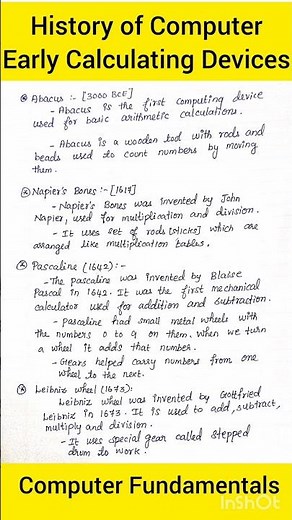 History of Computer
Early Calculating Devices
Abacus :- [3000 BCE]
- Abacus is the first computing device
used for basic arithmetic calculations.
- Abacus is a wooden tool with rods and
beads used to count numbers by moving
them.
Napier's Bones :- [1617]
- Napier's Bones was invented by John
Napier, used for multiplication and division.
- It uses set of rods [sticks] which are
arranged like multiplication tables.
Pascaline (1642) :-
- The pascaline was invented by Blaise
Pascal in 1642. It was the first mechanical
calculator used for addition and subtraction.
- Pascaline had small metal wheels with
the numbers 0 to 9 on them. when we turn
a wheel it adds that number.
- Gears helped carry numbers from one
wheel to the next.
Leibniz wheel (1673):
Leibniz wheel was invented by Gottfried
Leibniz in 1673. It is used to add, subtract,
multiply and division.
- It uses special gear called stepped
drum to work.
Computer Fundamentals
InShOt